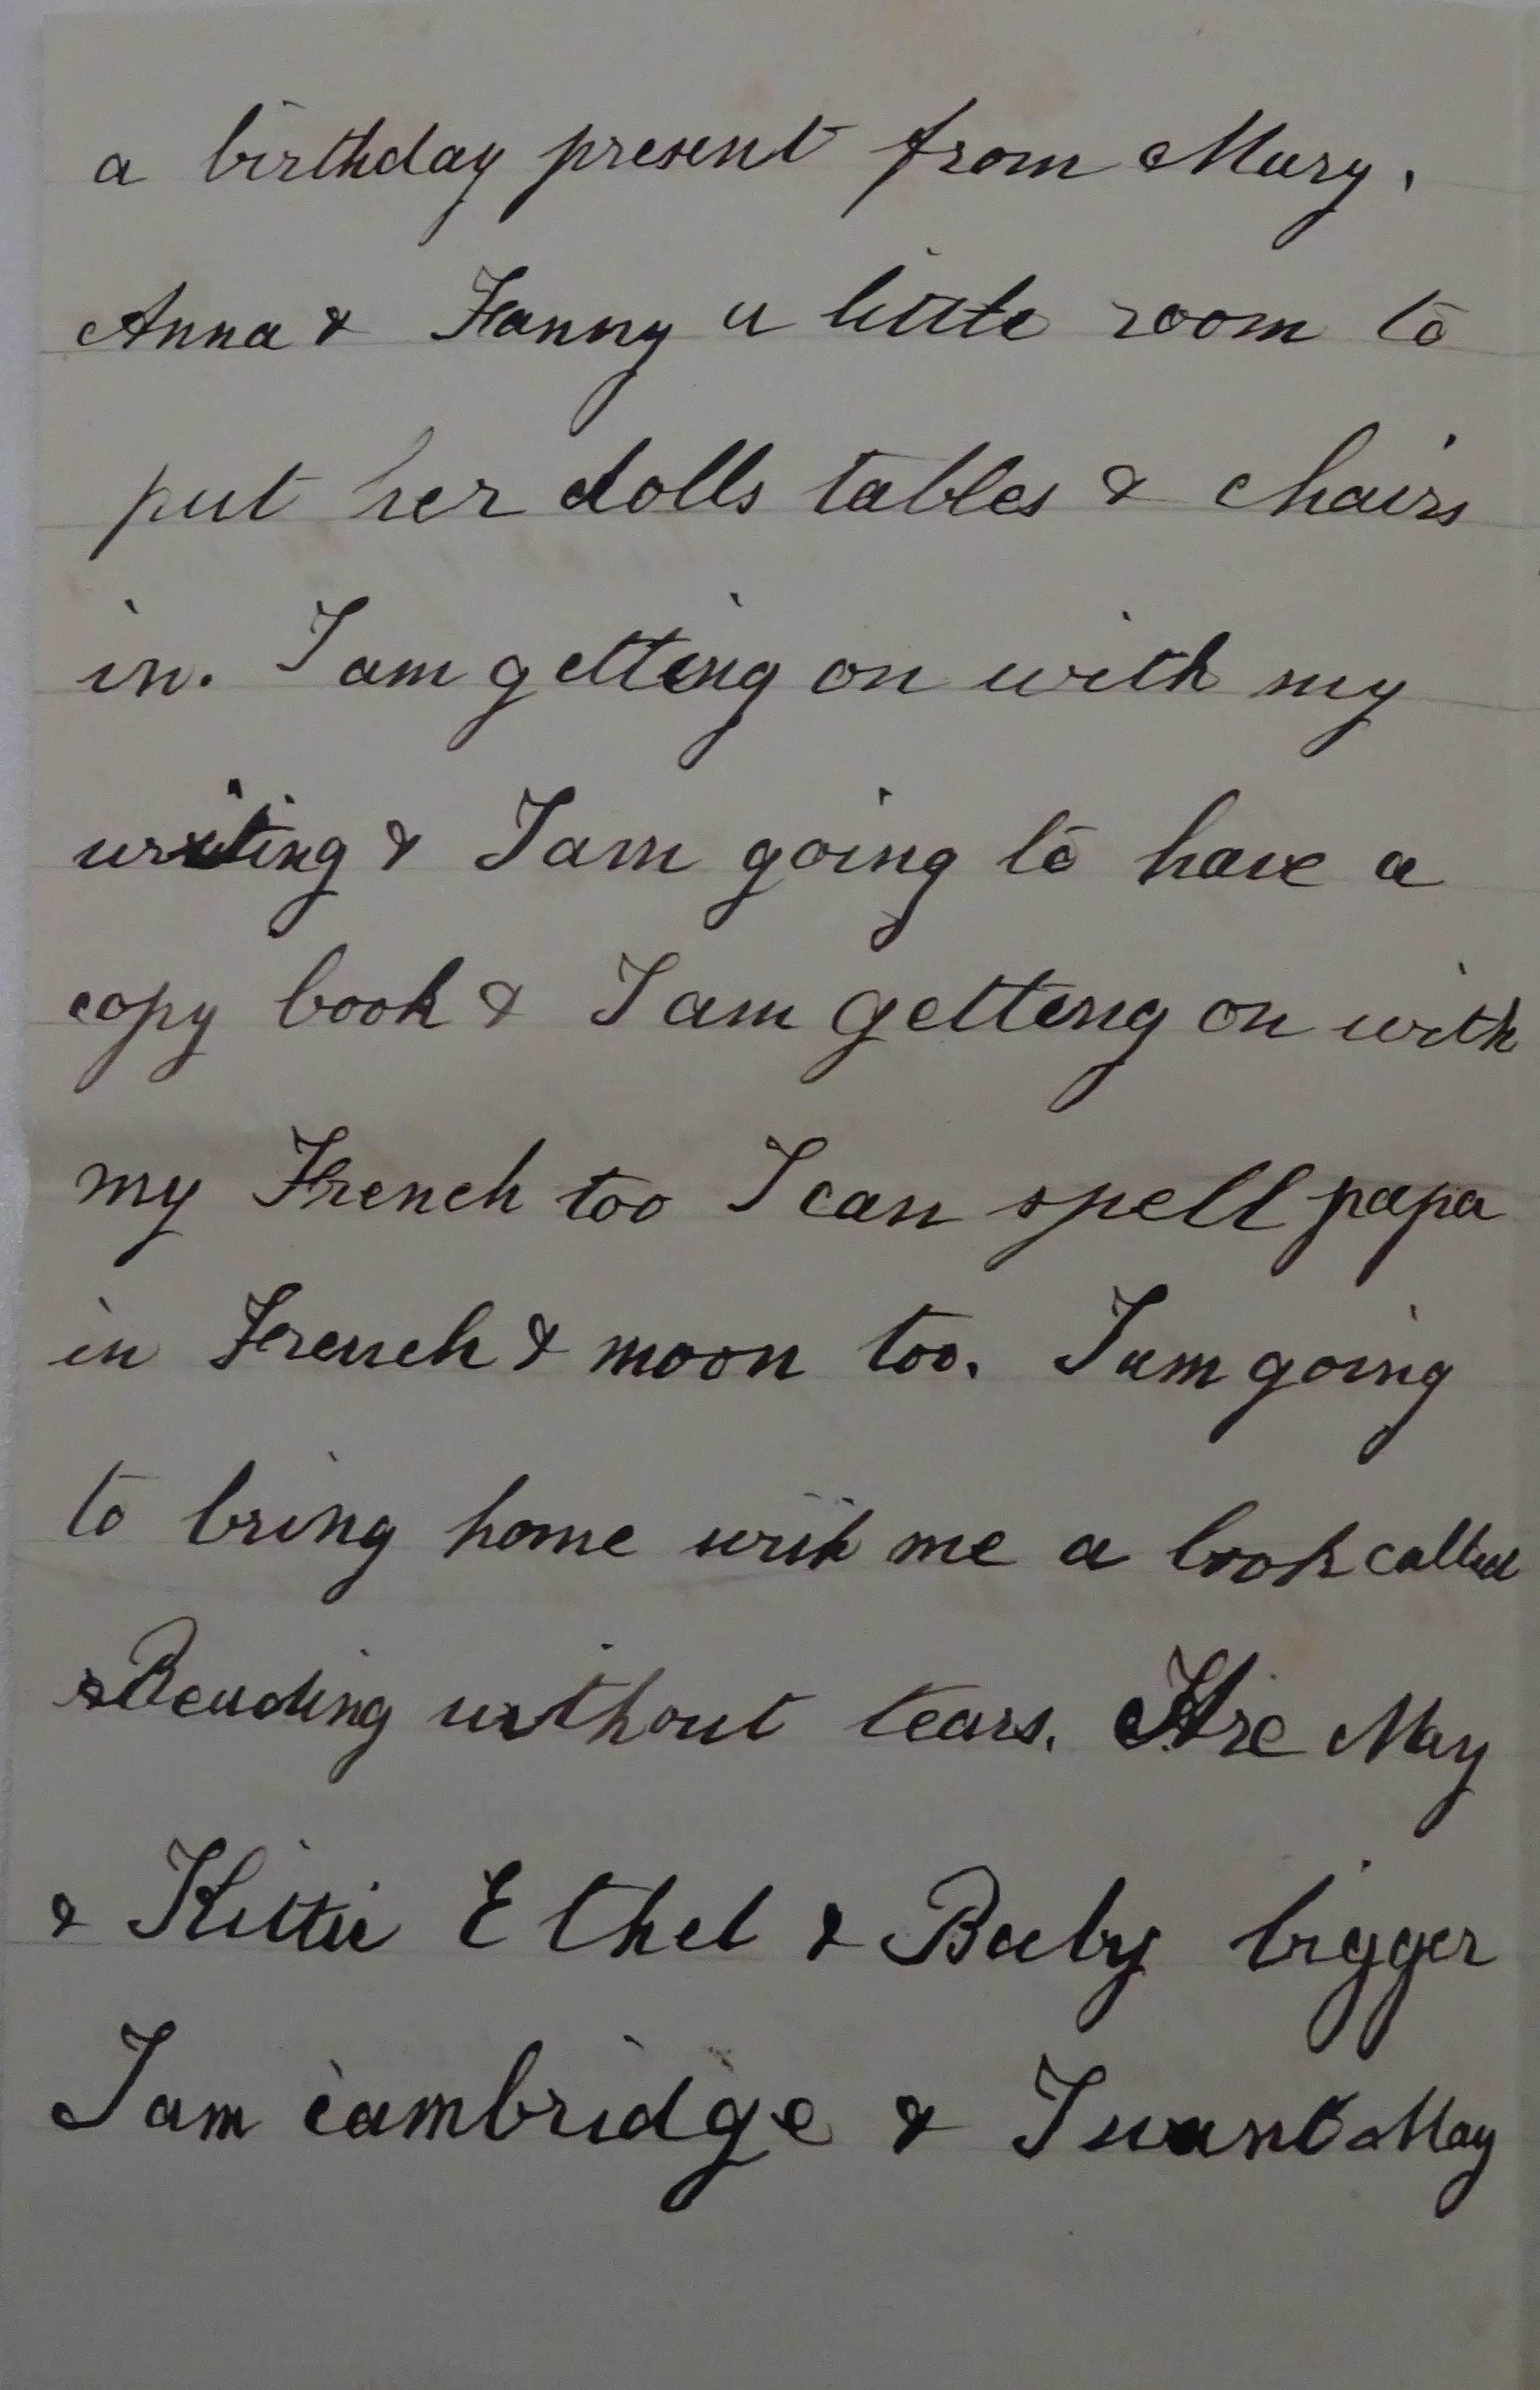 a birthday present from Mary,
Anna & Fanny a little room to
put her dolls tables & chairs
in. I am getting on with my
writing & I am going to have a
copy book & I am getting on with
my French too I can spell papa
in French & moon too. I am going
to bring home with me a book called
Reading without tears. Are May
& Kittie Ethel & Baby bigger
I am cambridge & I want May